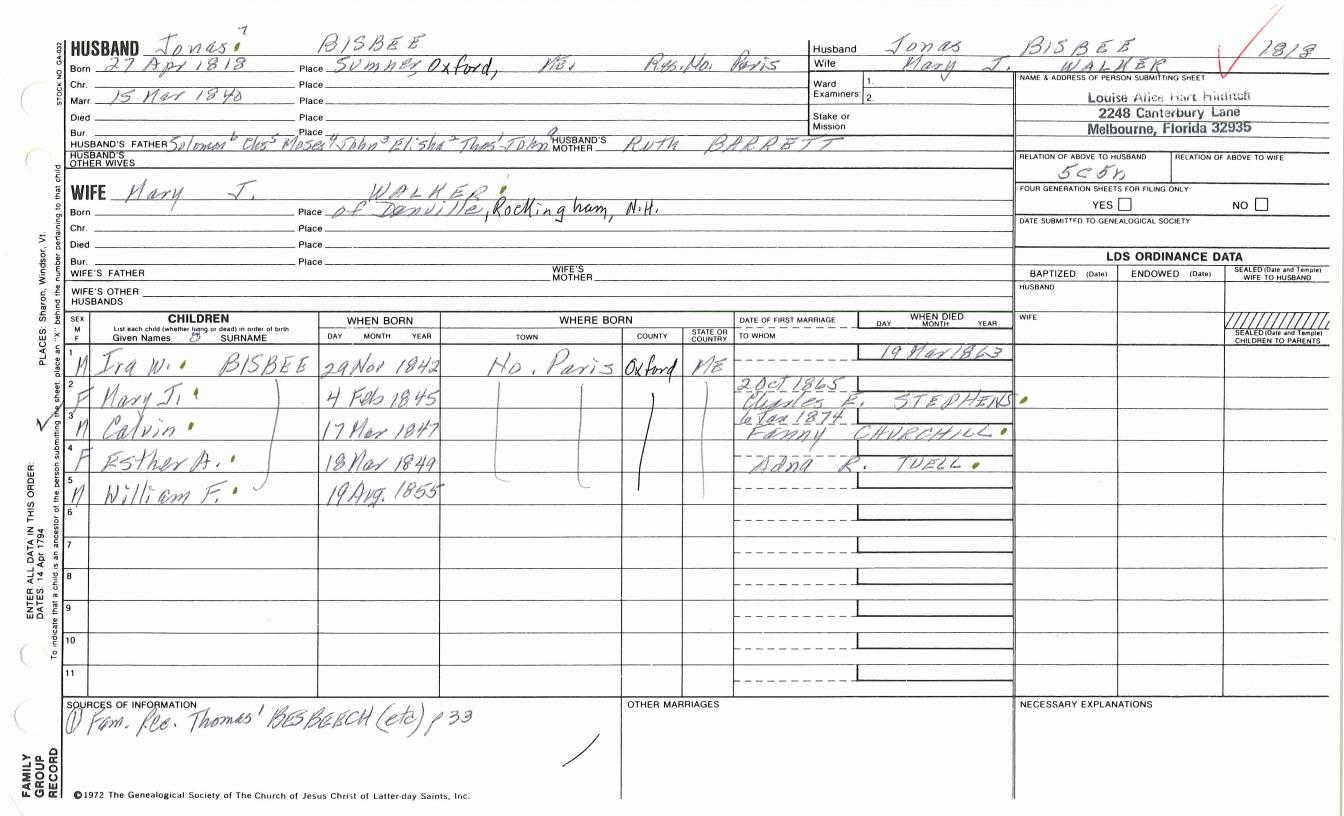 HUSBAND Jonas 7 BISBEE
Born 27 Apr 1818 Place Sumner, Oxford, ME. Res. No. Paris
Chr. Place
Marr. 15 Mar 1840 Place
Died Place
Bur. Place
HUSBAND'S FATHER Solomon 6 Chas 5 Moses 4 John 3 Elisha 2 Thos 1 John a HUSBAND'S MOTHER Ruth BARRETT
HUSBAND'S OTHER WIVES
Husband Jonas BISBEE 1818
Wife Mary J. WALKER
Ward Examiners 1. 2.
Stake or Mission
NAME & ADDRESS OF PERSON SUBMITTING SHEET
Louise Alice Hart
2248 Canterbury Lane
Melbourne, Florida 32935
RELATION OF ABOVE TO HUSBAND RELATION OF ABOVE TO WIFE
5c5r
FOUR GENERATION SHEETS FOR FILING ONLY
YES NO
DATE SUBMITTED TO GENEALOGICAL SOCIETY
WIFE Mary J. WALKER
Born Place of Danville, Rockingham, N.H.
Chr. Place
Died Place
Bur. Place
WIFE'S FATHER WIFE'S MOTHER
WIFE'S OTHER HUSBANDS
LDS ORDINANCE DATA
BAPTIZED (Date) ENDOWED (Date) SEALED (Date and Temple) WIFE TO HUSBAND
HUSBAND
WIFE
SEALED (Date and Temple) CHILDREN TO PARENTS
SEX M F
CHILDREN
List each child (whether living or dead) in order of birth
Given Names 8 SURNAME
WHEN BORN
DAY MONTH YEAR
WHERE BORN
TOWN COUNTY STATE OR COUNTRY
DATE OF FIRST MARRIAGE
TO WHOM
WHEN DIED
DAY MONTH YEAR
1 M Ira W. BISBEE 29 Nov 1842 No. Paris Oxford ME 19 Mar 1863
2 F Mary J. 4 Feb 1845 2 Oct 1865 Charles E. STEPHENS
3 M Calvin 17 Mar 1847 6 Jan 1874 Fanny CHURCHILL
4 F Esther A. 18 Mar 1849 Adna R. TUELL
5 M William F. 19 Aug. 1855
6
7
8
9
10
11
SOURCES OF INFORMATION
① Fam. Rec. Thomas' BESBEECH (etc) p 33
OTHER MARRIAGES
NECESSARY EXPLANATIONS
©1972 The Genealogical Society of The Church of Jesus Christ of Latter-day Saints, Inc.
STOCK NO. GA-032
PLACES: Sharon, Windsor, Vt.
ENTER ALL DATA IN THIS ORDER:
DATES: 14 Apr 1794
To indicate that a child is an ancestor of the person submitting the sheet, place an "X" behind the number pertaining to that child
FAMILY GROUP RECORD